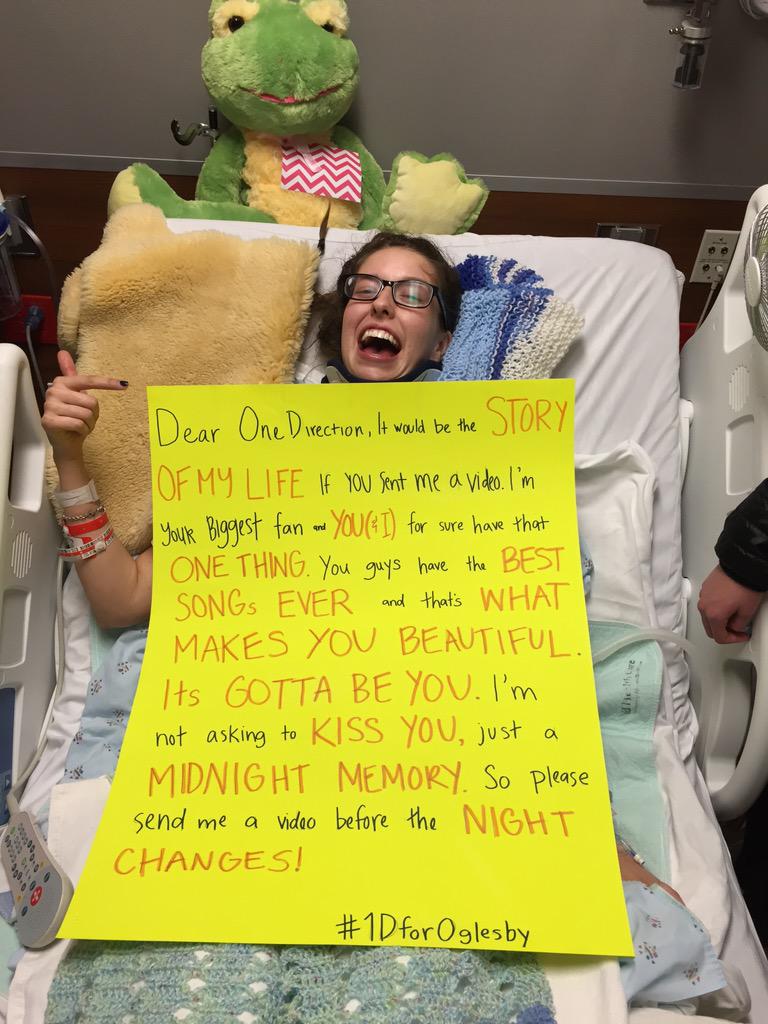 Dear One Direction, It would be the STORY
OF MY LIFE If you sent me a video. I'm
your Biggest fan and YOU(& I) for sure have that
ONE THING. You guys have the BEST
SONGs EVER and that's WHAT
MAKES YOU BEAUTIFUL.
Its GOTTA BE YOU. I'm
not asking to KISS YOU, just a
MIDNIGHT MEMORY. So please
send me a video before the NIGHT
CHANGES!
#1DforOglesby